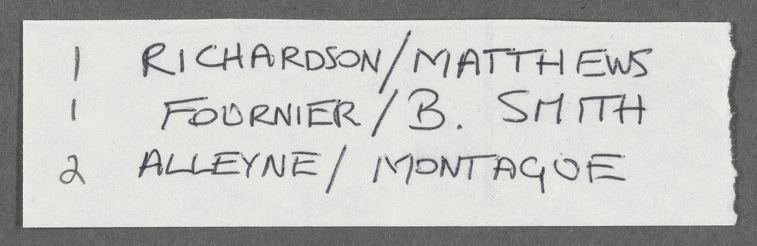 1 RICHARDSON/MATTHEWS
1 FOURNIER/B. SMITH
2 ALLEYNE/MONTAGUE